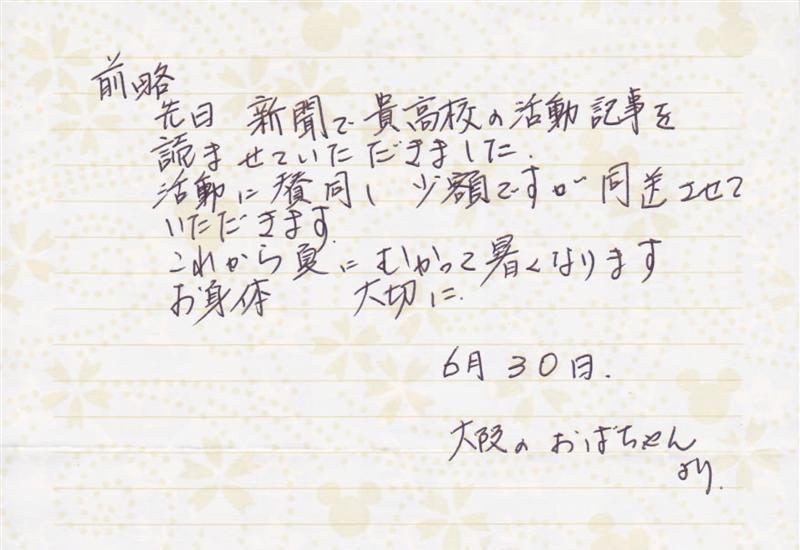 前略
先日 新聞で貴高校の活動記事を
読ませていただきました.
活動に賛同し 少額ですが同送させて
いただきます.
これから夏にむかって暑くなります
お身体 大切に.
6月30日.
大阪のおばちゃん
より.